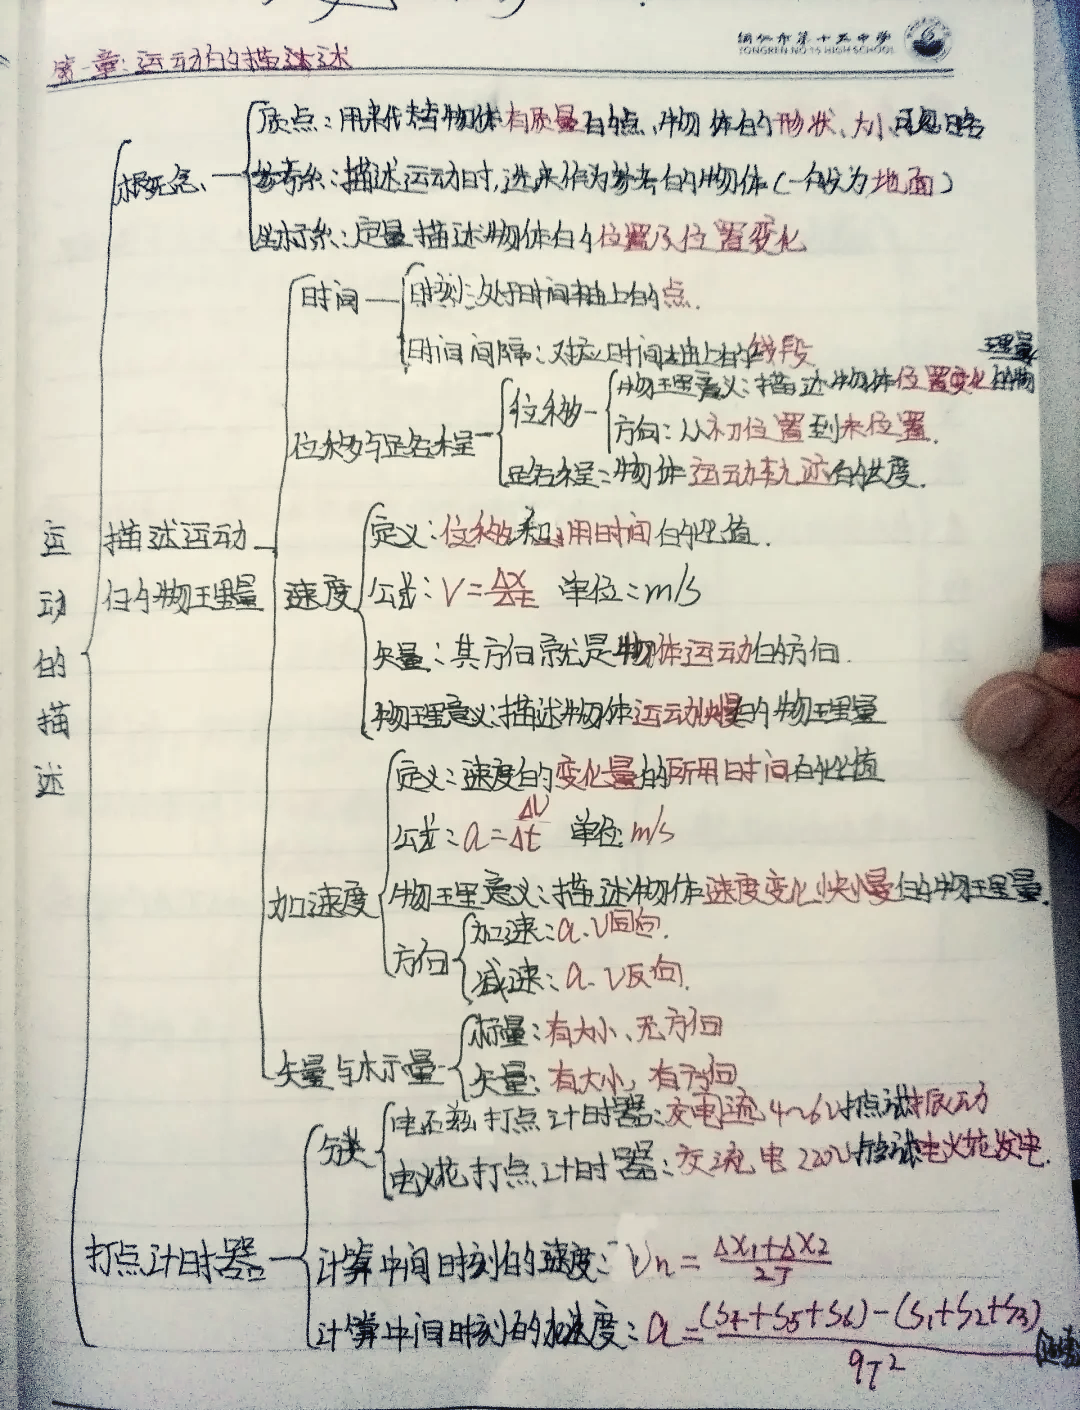 铜仁市第十五中学
TONGREN NO 15 HIGH SCHOOL
第一章:运动的描述
概念、
质点:用来代替物体有质量的点、物体的形状、大小可忽略
参考系:描述运动时,选来作为参考的物体(一般为地面)
坐标系:定量描述物体的位置及位置变化
时间
时刻:处于时间轴上的点.
时间间隔:对应时间轴上的线段
位移与路程
位移
物理意义:描述物体位置变化的物
理量
方向:从初位置到末位置.
路程:物体运动轨迹的长度.
运动的描述
描述运动
的物理量
速度
定义:位移和所用时间的比值.
公式:V=Δx/Δt 单位:m/s
矢量:其方向就是物体运动的方向.
物理意义:描述物体运动快慢的物理量
加速度
定义:速度的变化量的所用时间的比值
公式:a=ΔV/Δt 单位:m/s
物理意义:描述物体速度变化快慢的物理量.
方向
加速:a、V同向.
减速:a、V反向.
矢量与标量
标量:有大小、无方向
矢量:有大小,有方向
打点计时器
分类
电磁打点计时器:交电流4~6V打点 振动
电火花打点计时器:交流电220V 电火花发电.
计算中间时刻的速度:Vn=Δx1+Δx2/2T
计算中间时刻的加速度:a=(S4+S5+S6)-(S1+S2+S3)/9T²